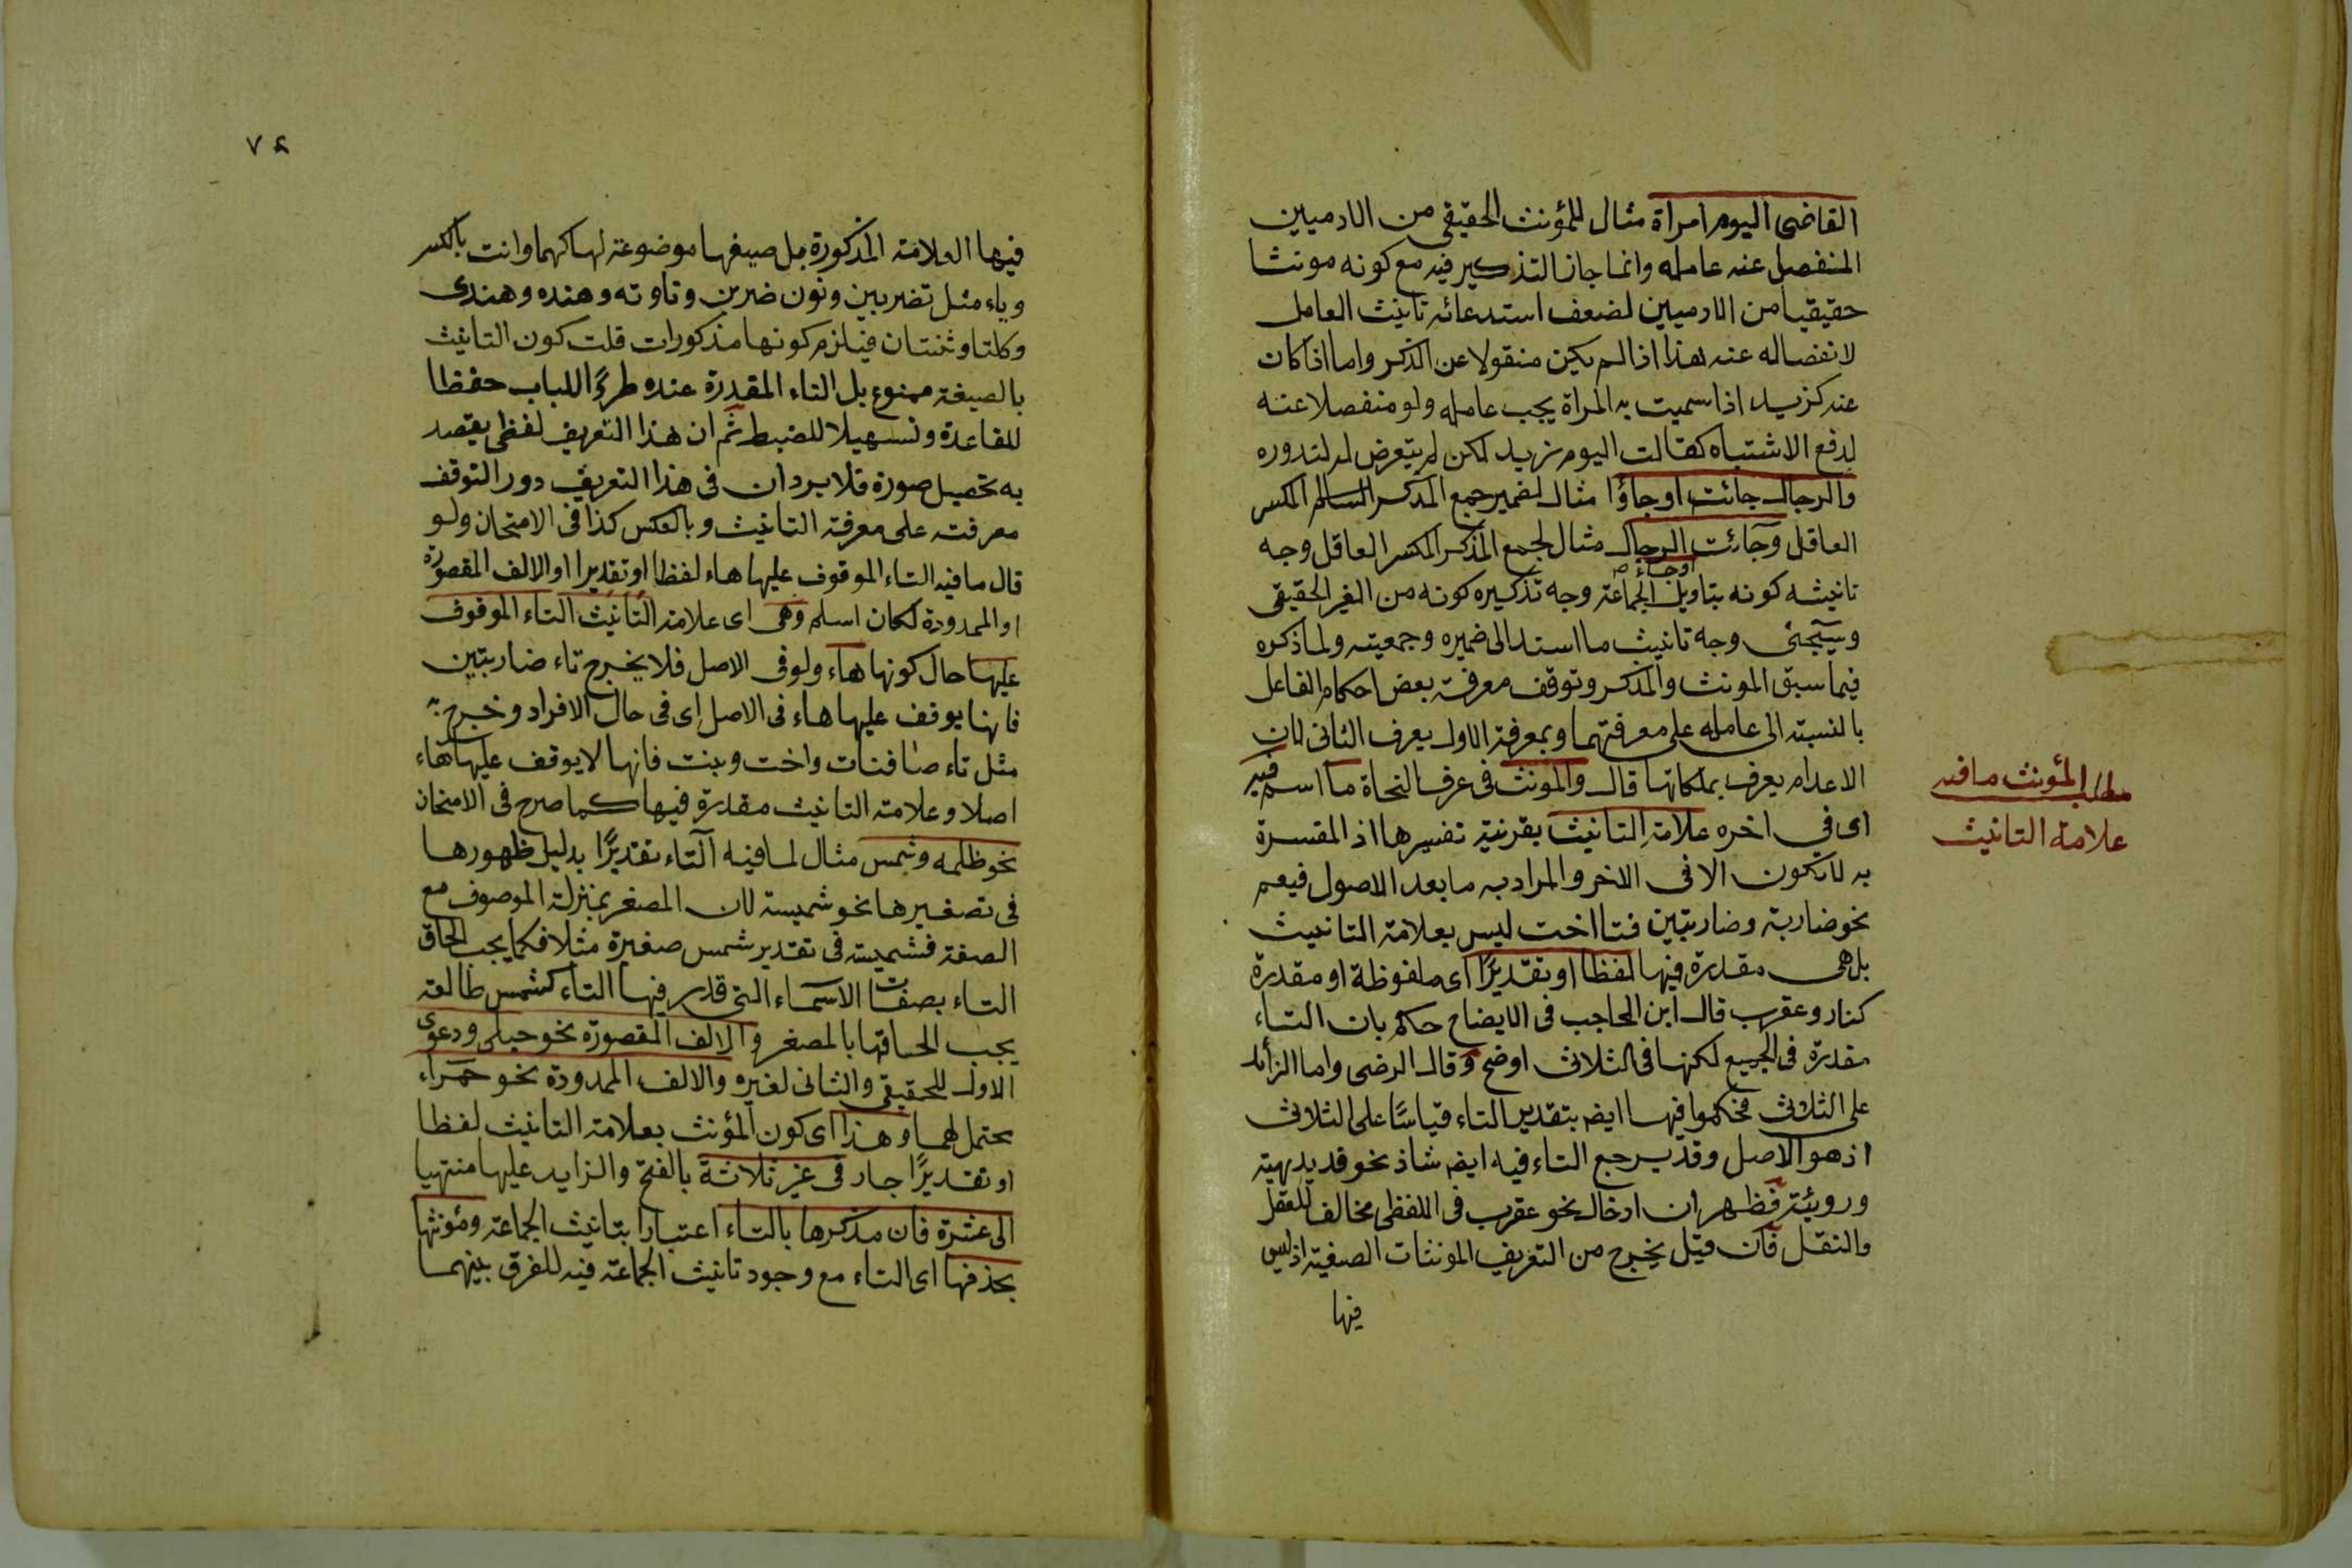 القاضى اليوم امراة مثال للمؤنث الحقيقى من الادميين
المنفصل عنه عامله وانما جاز التذكير فيه مع كونه مونثا
حقيقيا من الادميين لضعف استدعائه تانيث العامل
لانفصاله عنه هذا اذا لم يكن منقولا عن الذكر واما اذا كان
عنه كزيد اذا سميت به المراة يجب عامله ولو منفصلا عنه
لدفع الاشتباه كقالت اليوم زيد لكن لم يتعرض له لندوره
والرجال جائت او جاؤا مثال لضمير جمع المذكر السالم المكسر
العاقل وجائت الرجال مثال لجمع المذكر المكسر العاقل وجه
او جاء
تانيثه كونه بتاويل الجماعة وجه تذكيره كونه من الغير الحقيقى
وسيجئى وجه تانيث ما اسند الى ضميره وجمعيته ولما ذكره
فيما سبق المونث والمذكر وتوقف معرفة بعض احكام الفاعل
بالنسبة الى عامله على معرفتهما وبمعرفة الاول يعرف الثانى لان
الاعدام يعرف بملكاتها قال والمونث فى عرف النحاة ما اسم فيه
اى فى اخره علامة التانيث بقرنية تفسيرها اذ المفسرة
به لا تكون الا فى الاخر والمراد به ما بعد الاصول فيعم
نحو ضاربة وضاربتين فتا اخت ليس بعلامة التانيث
بل هى مقدرة فيها لفظا او تقديرًا اى ملفوظة او مقدرة
كنار وعقرب قال ابن الحاجب فى الايضاح حكم بان التاء
مقدرة فى الجميع لكنها فى الثلاثى اوضح وقال الرضى واما الزائد
على الثلاثى فحكموا فيها ايضا بتقدير التاء قياسًا على الثلاثى
اذ هو الاصل وقد يرجع التاء فيه ايضا شاذ نحو قديديهة
وروئية فظهر ان ادخال نحو عقرب فى اللفظى مخالف للعقل
والنقل فان قيل يخرج من التعريف المونثات الصيغية اذ ليس
فيها
مطلب المؤنث ما فيه
علامة التانيث
٧٤
فيها العلامة المذكورة بل صيغها موضوعة لها كهما وانت بالكسر
وياء مثل تضربين ونون ضربن وتا وته وهذه وهذى
وكلتا وثنتان فيلزم كونها مذكورات قلت كون التانيث
بالصيغة ممنوع بل التاء المقدرة عنده طردًا للباب حفظا
للقاعدة وتسهيلا للضبط ثم ان هذا التعريف لفظى يقصد
به تحصيل صورة فلا يرد ان فى هذا التعريف دور التوقف
معرفته على معرفة التانيث وبالعكس كذا فى الامتحان ولو
قال ما فيه التاء الموقوف عليها هاء لفظا او تقديرا او الالف المقصورة
او الممدودة لكان اسلم وهى اى علامة التانيث التاء الموقوف
عليها حال كونها هاء ولو فى الاصل فلا يخرج تاء ضاربتين
فانها يوقف عليها هاء فى الاصل اى فى حال الافراد وخرج به
مثل تاء صافنات واخت وبنت فانها لا يوقف عليها هاء
اصلا وعلامة التانيث مقدرة فيها كما صرح فى الامتحان
نحو ظلمه وشمس مثال لما فيه التاء تقديرًا بدليل ظهورها
فى تصغيرها نحو شميسة لان المصغر بمنزلة الموصوف مع
الصفة فشميسة فى تقدير شمس صغيرة مثلا فكما يجب الحاق
التاء بصفات الاسماء التى قدر فيها التاء كشمس طالعة
يجب الحاقها بالمصغر والالف المقصورة نحو حبلى ودعوى
الاول للحقيقى والثانى لغيره والالف الممدودة نحو حمراء
يحتمل لهما وهذا اى كون المؤنث بعلامة التانيث لفظا
او تقديرًا جار فى غير ثلاثة بالفتح والزايد عليها منتهيا
الى عشرة فان مذكرها بالتاء اعتبارا بتانيث الجماعة ومؤنثها
بحذفها اى التاء مع وجود تانيث الجماعة فيه للفرق بينهما